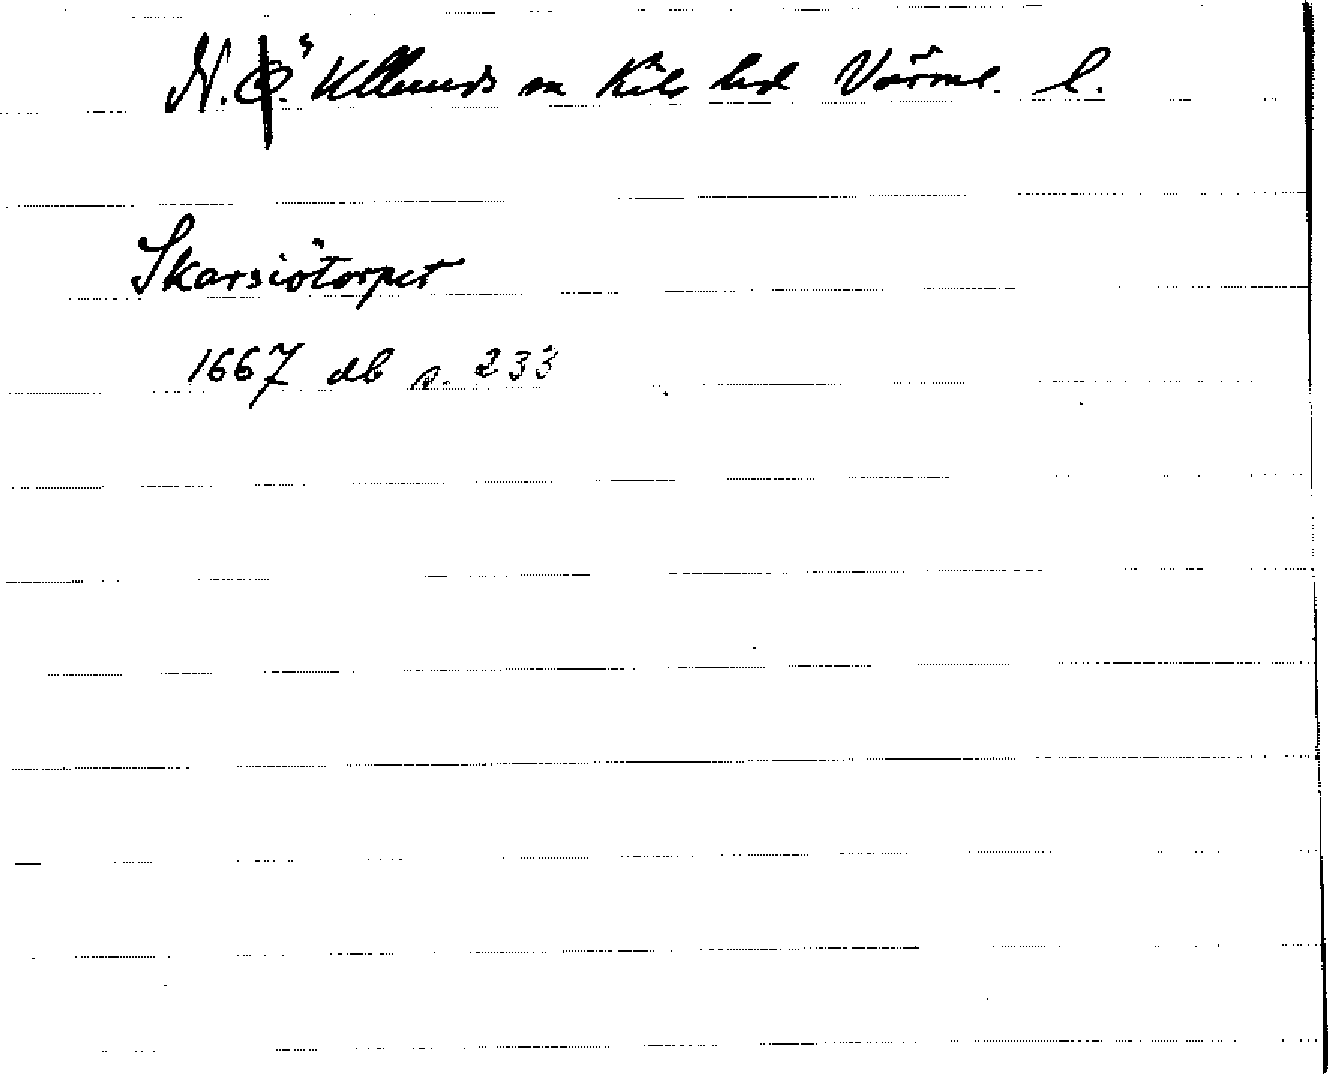 N. Ö. Ulleruds sn Kils hd Värml. l.
Skarsiötorpet
1667 db s. 233